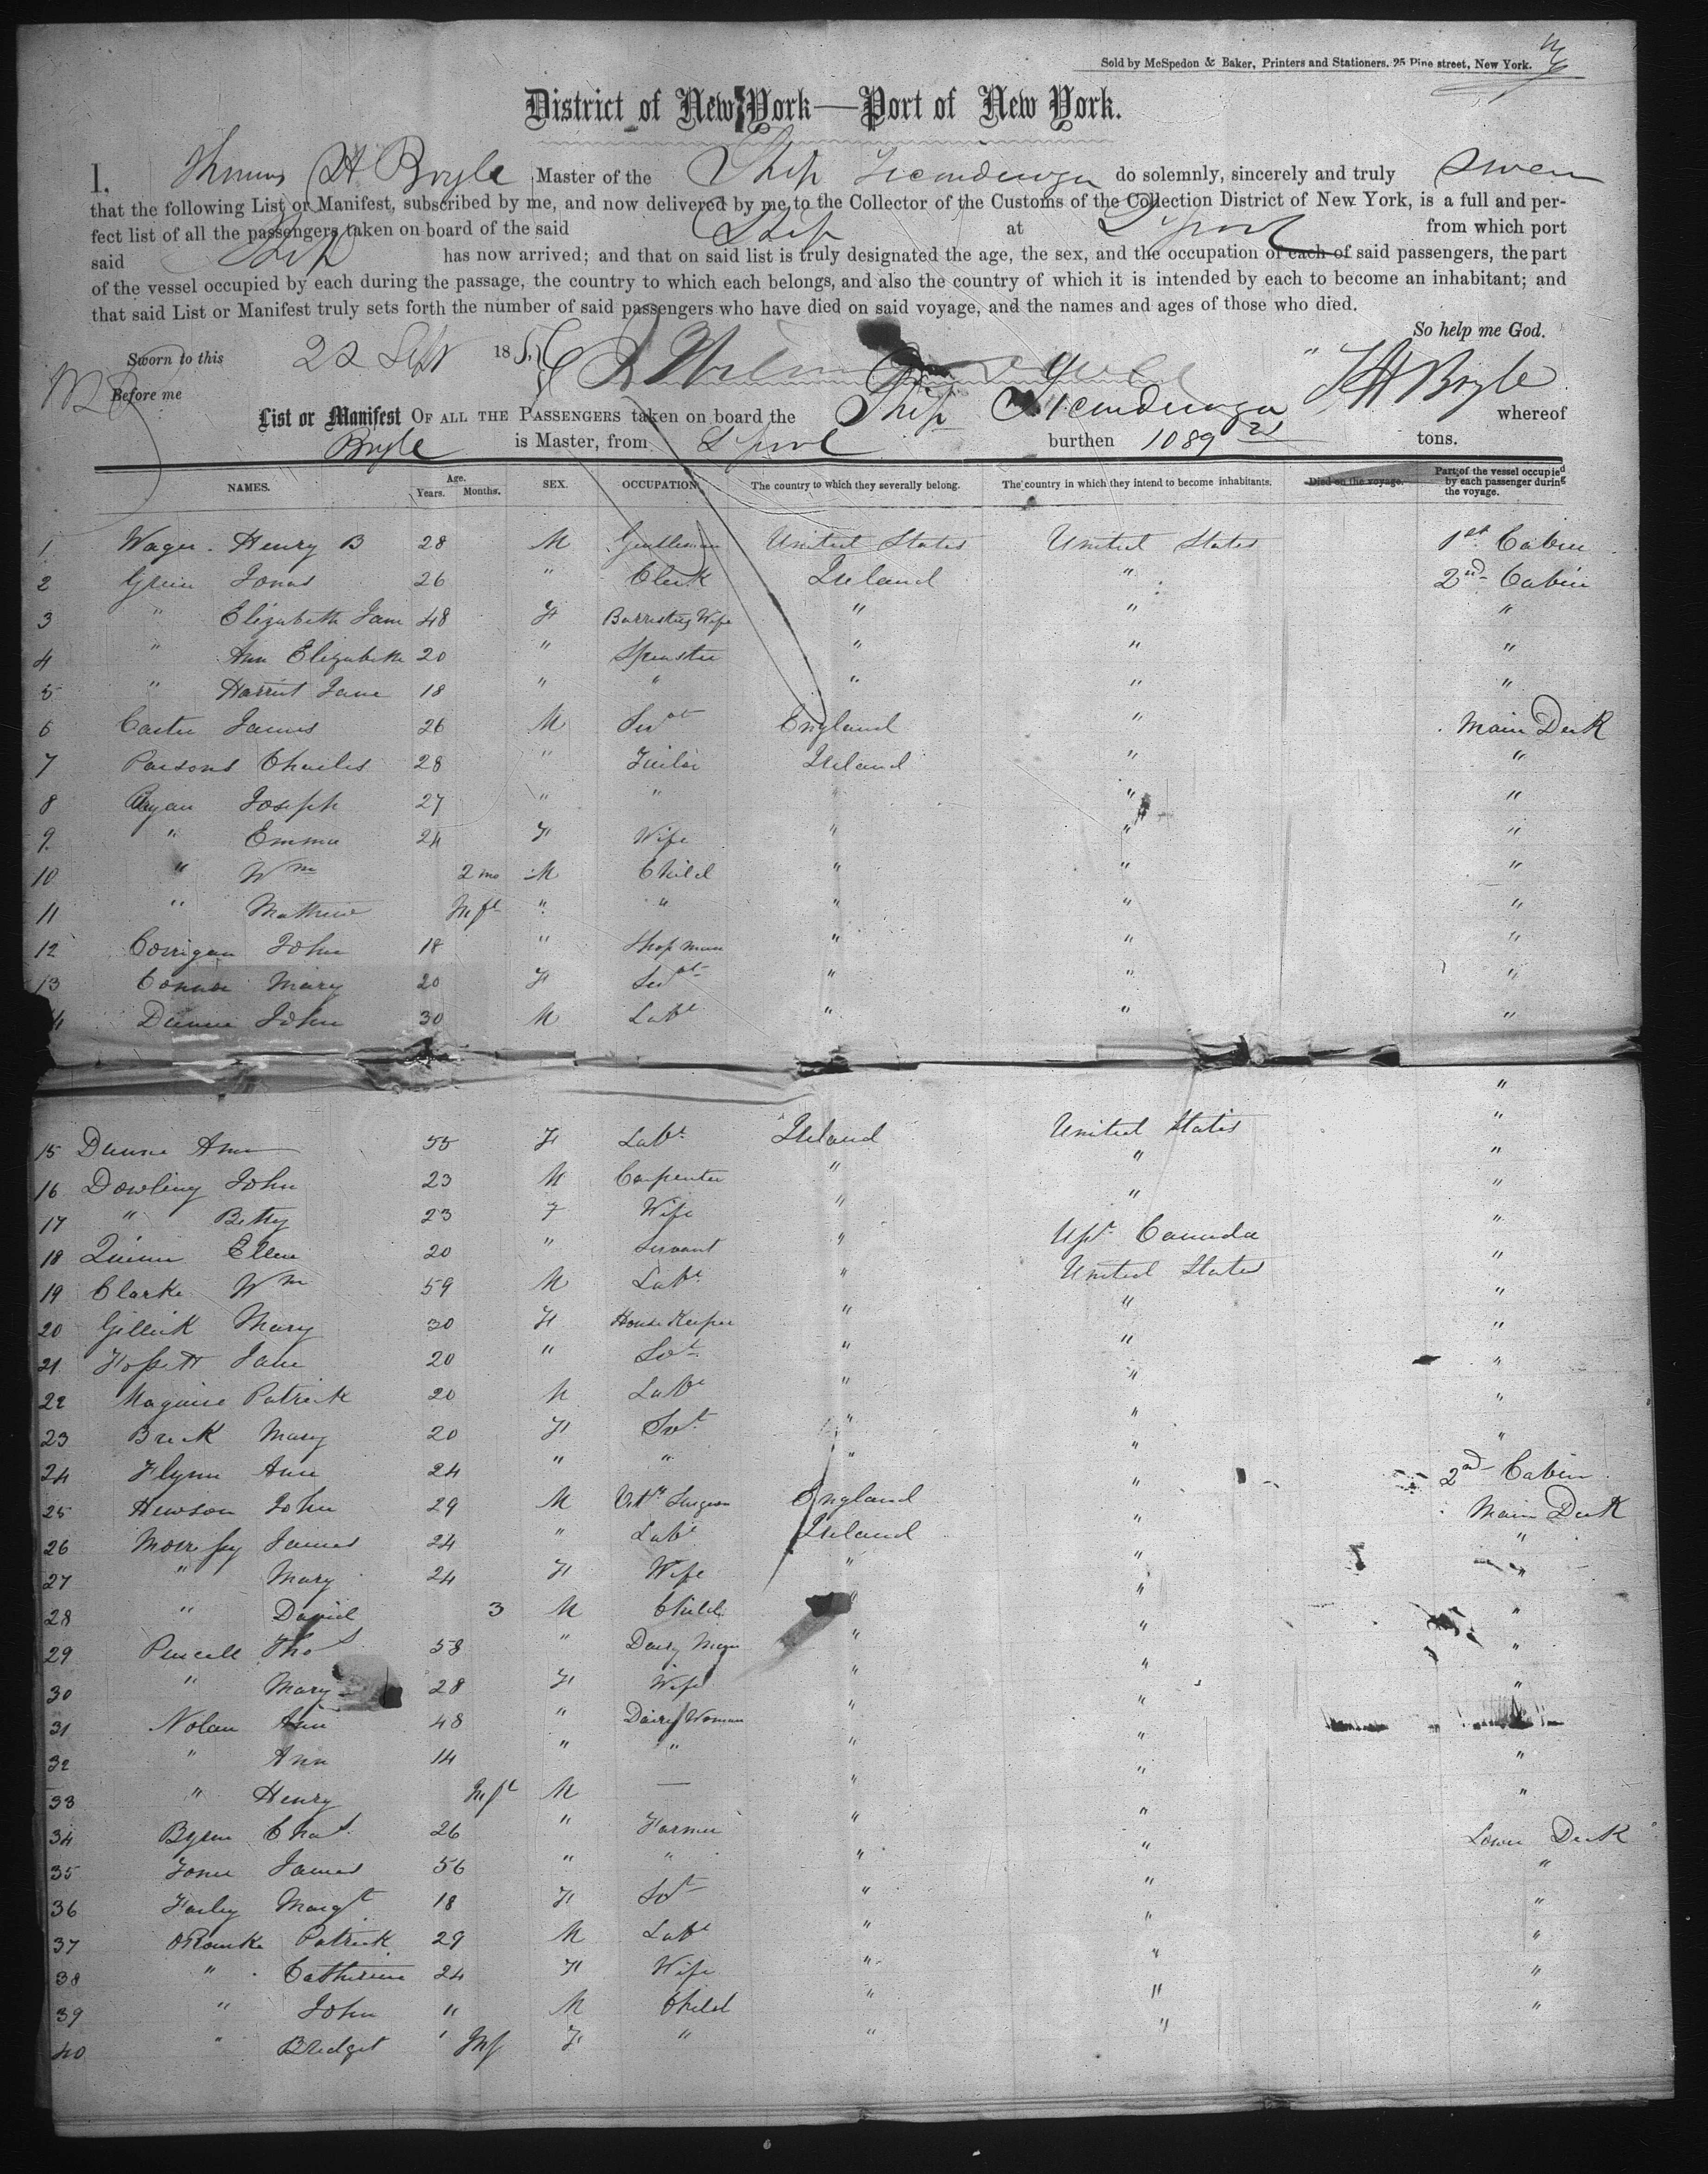 Sold by McSpedon & Baker, Printers and Stationers, 25 Pine street, New York.
District of New York—Port of New York.
I, Thomas H Boyle Master of the Ship Ticonderoga do solemnly, sincerely and truly swear
that the following List or Manifest, subscribed by me, and now delivered by me to the Collector of the Customs of the Collection District of New York, is a full and per-
fect list of all the passengers taken on board of the said Ship at L'pool from which port
said Ship has now arrived; and that on said list is truly designated the age, the sex, and the occupation of each of said passengers, the part
of the vessel occupied by each during the passage, the country to which each belongs, and also the country of which it is intended by each to become an inhabitant; and
that said List or Manifest truly sets forth the number of said passengers who have died on said voyage, and the names and ages of those who died.
So help me God.
Sworn to this 22 Sept 1856
Before me
T H Boyle
List or Manifest OF ALL THE PASSENGERS taken on board the Ship Ticonderoga whereof
Boyle is Master, from L'pool burthen 1089 tons.
NAMES. Age. Years. Months. SEX. OCCUPATION. The country to which they severally belong. The country in which they intend to become inhabitants. Died on the voyage. Part of the vessel occupied by each passenger during the voyage.
1 Wager Henry B 28 M Gentleman United States United States 1st Cabin
2 Green Jonas 26 " Clerk Ireland " 2nd Cabin
3 " Elizabeth Jane 48 F Barristers Wife " " "
4 " Ann Elizabeth 20 " Spinster " " "
5 " Harriet Jane 18 " " " " "
6 Carter James 26 M Servt England " Main Deck
7 Parsons Charles 28 " Tailor Ireland " "
8 Ryan Joseph 27 " " " " "
9 " Emma 24 F Wife " " "
10 " Wm 2 mo M Child " " "
11 " Mathew Inft " " " " "
12 Corrigan John 18 " Shop man " " "
13 Connor Mary 20 F Servt " " "
Dunne John 30 M Labr " " "
"
15 Dunne Ann 55 F Labr Ireland United States "
16 Dowling John 23 M Carpenter " " "
17 " Betty 23 F Wife " " "
18 Quinn Ellen 20 " Servant " Upr Canada "
19 Clarke Wm 59 M Labr " United States "
20 Gillick Mary 30 F House Keeper " " "
21 Fossett Jane 20 " Svt " " "
22 Maguire Patrick 20 M Labr " " "
23 Breck Mary 20 F Svt " " "
24 Flynn Ann 24 " " " " "
25 Hewson John 29 M Vety Surgeon England " 2nd Cabin
26 Morrissy James 24 " Labr Ireland " Main Deck
27 " Mary 24 F Wife " " "
28 " David 3 M Child " " "
29 Purcell Thos 58 " Dairy Man " " "
30 " Mary 28 F Wife " " "
31 Nolan Ann 48 " Dairy Woman " "
32 " Ann 14 " " " " "
33 " Henry Inft M — " " "
34 Byrne Chas 26 " Farmer " " Lower Deck
35 James 56 " " " " "
36 Farley Margt 18 F Svt " " "
37 ORourke Patrick 29 M Labr " " "
38 " Catherine 24 F Wife " " "
39 " John " M Child " " "
40 " Bridget " Inf F " " "